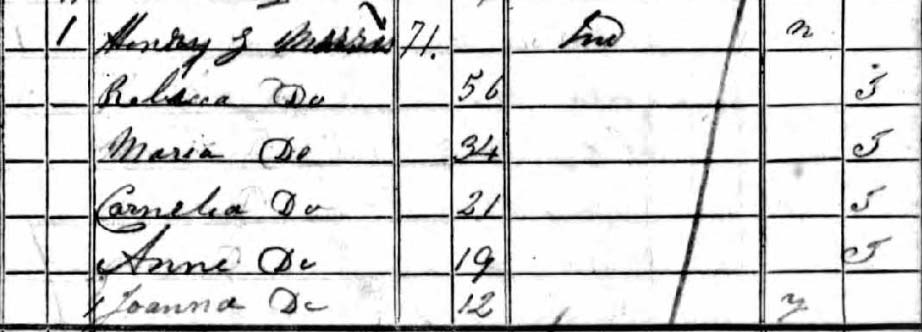 1 Henry 71. Ind n
Rebecca Do 56
Maria Do 34
Cornelia Do 21
Anne Do 19
Joanna Do 12 y